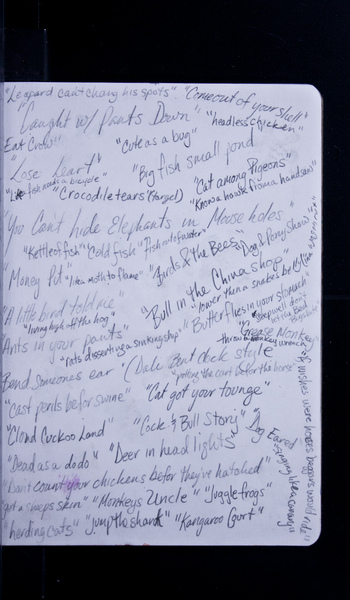 "Leopard can't chang his spots" "Come out of your shell"
"Caught w/ Pants Down" "headless chicken"
Eat Crow" "Cute as a bug"
"Lose heart" "Big fish small pond
"Like fish needs a bicycle" "Cat among Pigeons"
"Crocodile tears "Know a hawk from a handsaw"
"You Can't hide Elephants in Mouse holes"
"Kettle of fish" "Cold fish" "Fish out of water"
"Money Pit" "like a moth to flame" "Birds & the Bees" "Dog & Pony Show"
"A little bird told me" "Bull in the China shop"
"living high off the hog" "lower then a snakes belly"
Ants in your pants" "Butterflies in your stomach
"rats disserting a sinking ship" "Grease Monkey
Bend someones ear
"putting the cart before the horse"
"cast perils befor swine" "Cat got your tounge"
"Cloud Cuckoo Land" "Cock & Bull Story" "Dog Eared
"Dead as a dodo" "Deer in head lights"
"Don't count your chickens befor they've hatched"
"Monkeys Uncle" "Juggle frogs"
"herding cats" "jump the shark" "Kangaroo Court"
"If wishes were horses beggars would ride"